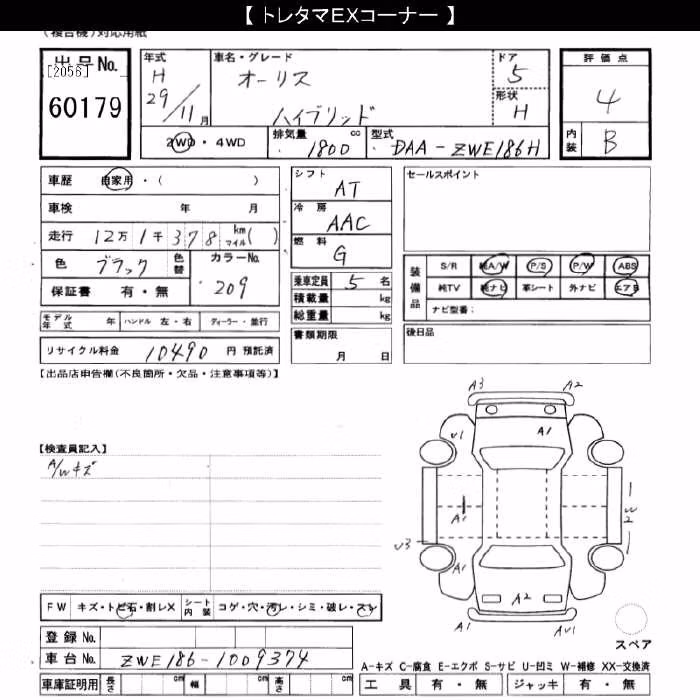 【 トレタマEXコーナー 】
(複合機)対応用紙
出品No.
[2056]
60179
年式
H
29/11月
車名・グレード
オーリス
ハイブリッド
ドア
5
形状
H
評価点
4
内装
B
2WD・4WD
排気量 1800 cc
型式 DAA-ZWE186H
車歴 自家用・( )
車検 年 月
走行 12万1千378 km マイル( )
色 ブラック 色替
カラーNo. 209
保証書 有・無
シフト
AT
冷房
AAC
燃料
G
乗車定員 5 名
積載量 kg
総重量 kg
セールスポイント
装備品
S/R 純A/W P/S P/W ABS
純TV 純ナビ 革シート 外ナビ エアB
ナビ型番:
モデル年式 年 ハンドル 左・右 ディーラー・並行
書類期限
月 日
後日品
リサイクル料金 10490 円 預託済
【出品店申告欄(不良箇所・欠品・注意事項等)】
【検査員記入】
A/Wキズ
A3 A2
U1 A1
A1 W2
U3
A1
A2
A1 AU1
スペア
FW キズ・トビ石・割レX シート内装 コゲ・穴・汚レ・シミ・破レ・スレ
登録No.
車台No. ZWE186-1009374
A-キズ C-腐食 E-エクボ S-サビ U-凹ミ W-補修 XX-交換済
車庫証明用 長さ cm 幅 cm 高さ cm
工具 有・無 ジャッキ 有・無